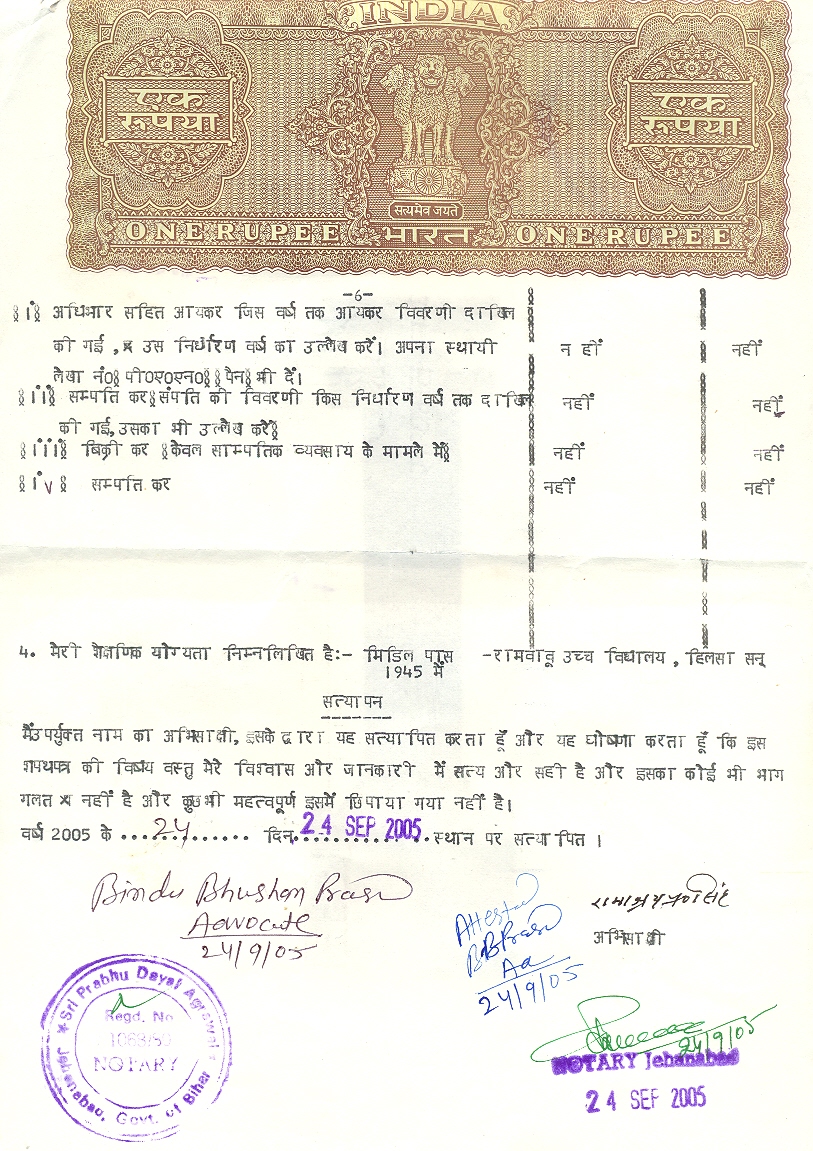 INDIA
एक
रूपया
एक
रूपया
सत्यमेव जयते
ONE RUPEE भारत ONE RUPEE
-6-
§i§ अधिभार सहित आयकर जिस वर्ष तक आयकर विवरणी दाखिल
की गई , उस निर्धारण वर्ष का उल्लेख करें। अपना स्थायी नहीं नहीं
लेखा नं0§ पी0ए0एन0§§ पैन§ भी दें।
§ii§ सम्पति कर§संपति की विवरणी किस निर्धारण वर्ष तक दाखिल नहीं नहीं
की गई,उसका भी उल्लेख करें§
§iii§ बिक्री कर §केवल साम्पतिक व्यवसाय के मामले में§ नहीं नहीं
§iv§ सम्पति कर नहीं नहीं
4. मेरी शैक्षणिक योग्यता निम्नलिखित है:- मिडिल पास -रामबाबू उच्च विद्यालय , हिलसा सन्
1945 में
सत्यापन
मैंउपर्युक्त नाम का अभिसाक्षी, इसके द्वारा यह सत्यापित करता हूँ और यह घोषणा करता हूँ कि इस
शपथपत्र की विषय वस्तु मेरे विश्वास और जानकारी में सत्य और सही है और इसका कोई भी भाग
गलत नहीं है और कुछ भी महत्वपूर्ण इसमें छिपाया गया नहीं है।
वर्ष 2005 के ...24...... दिन 24 SEP 2005 स्थान पर सत्यापित ।
Bindu Bhushan Prasad
Advocate
24/9/05
Attested
BBPrasad
Ad
24/9/05
अभिसाक्षी
Sri Prabhu Dayal Agrawal
Regd. No
NOTARY
Jehanabad, Govt. of Bihar
24/9/05
NOTARY Jehanabad
24 SEP 2005